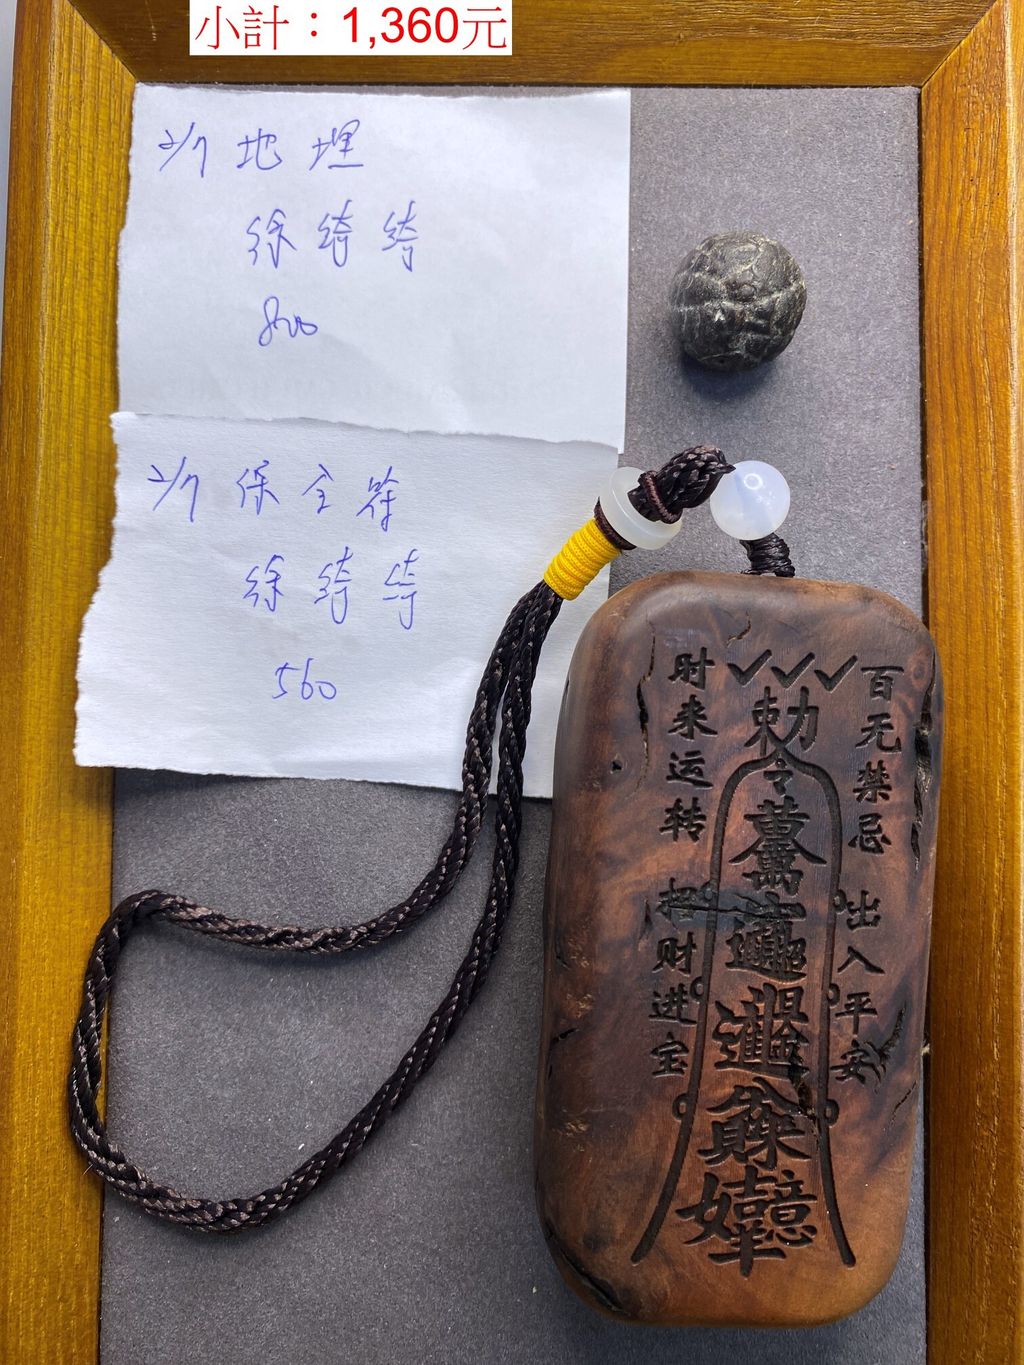 小計：1,360元
2/7 地埋
徐綺綺
800
2/7 保主符
徐綺綺
560
百无禁忌 出入平安
勅令
时来运转 招财进宝